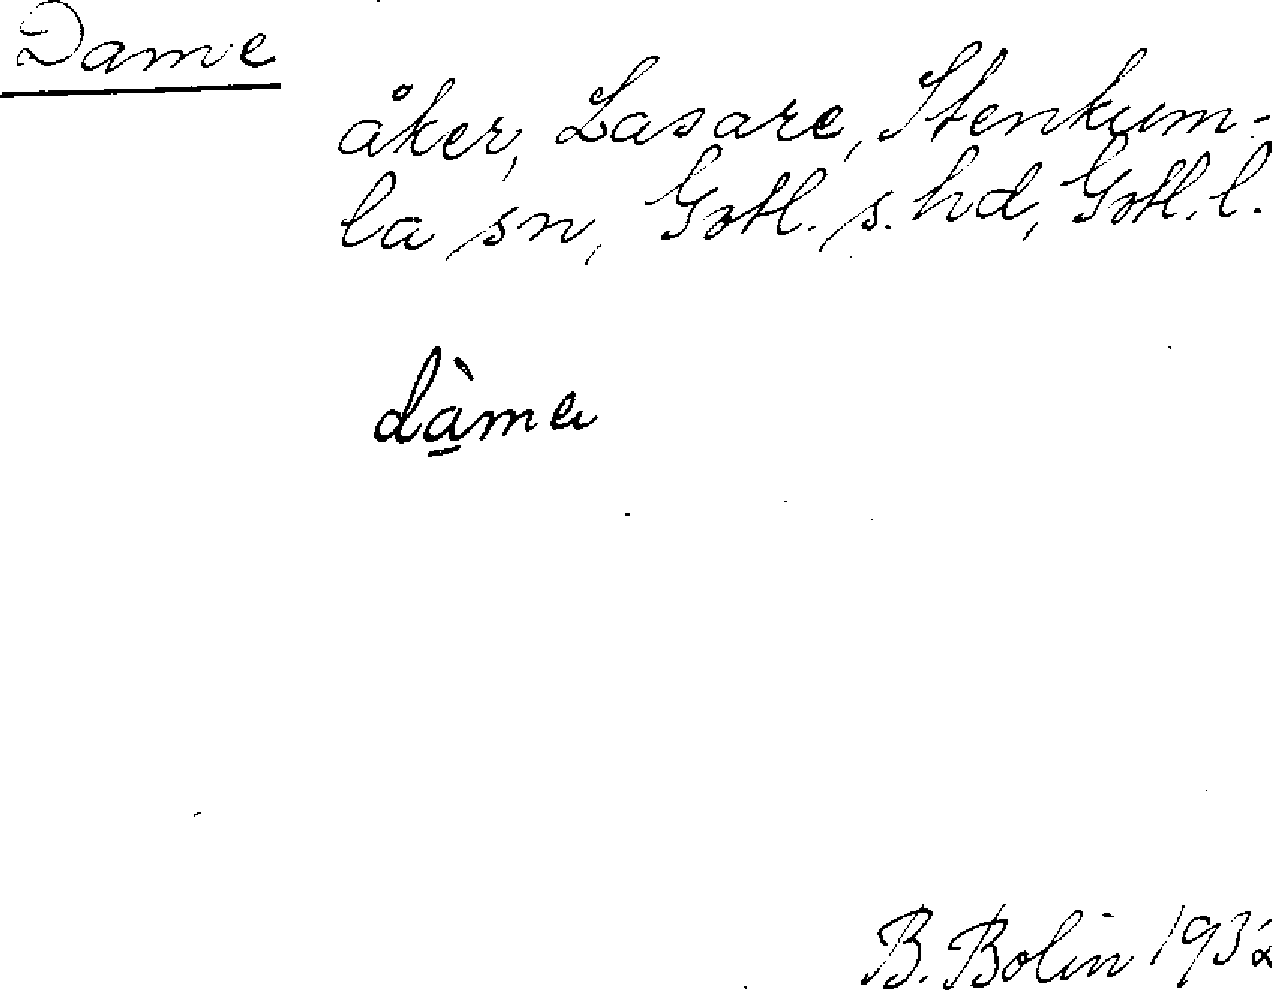 Dame
åker, Lasare, Stenkum-
la sn, Gotl. s. hd, Gotl. l.
dàme
B. Bolin 1932